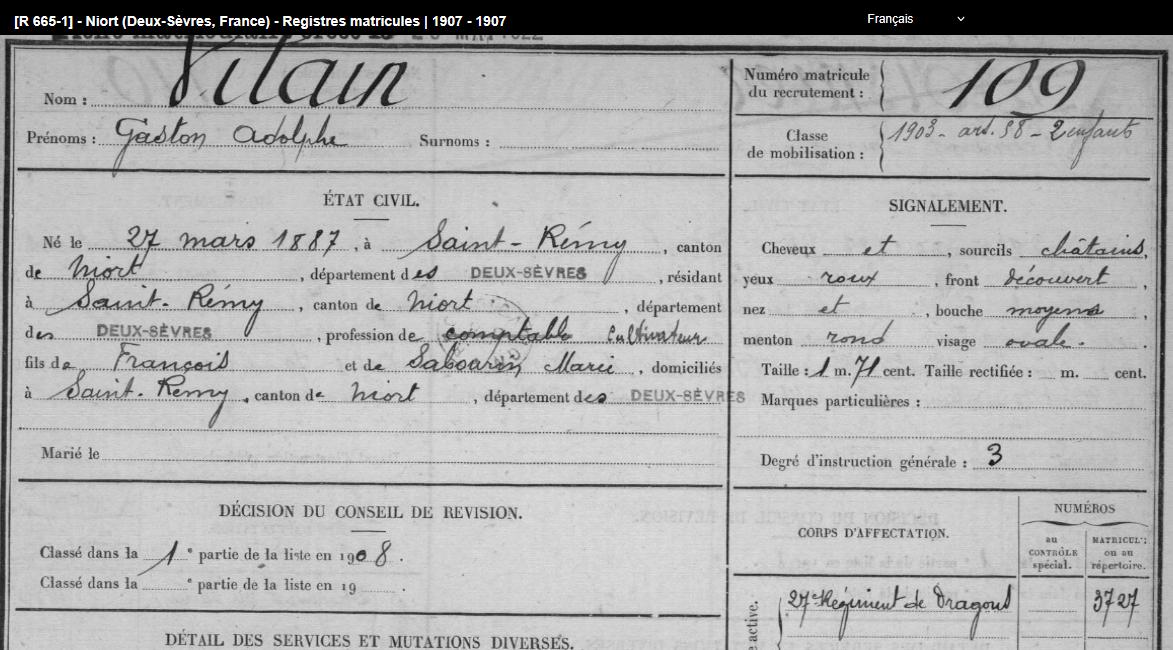 [R 665-1] - Niort (Deux-Sèvres, France) - Registres matricules | 1907 - 1907
Français
Nom : Vilain
Prénoms : Gaston Adolphe Surnoms :
Numéro matricule du recrutement : 109
Classe de mobilisation : 1903 - art. 58 - 2 enfants
ÉTAT CIVIL.
Né le 27 mars 1887, à Saint-Rémy, canton
de Niort, département des DEUX-SÈVRES, résidant
à Saint-Rémy, canton de Niort, département
des DEUX-SÈVRES, profession de comptable Cultivateur
fils de François et de Sabourin Marie, domiciliés
à Saint-Remy, canton de Niort, département des DEUX-SÈVRES
Marié le
SIGNALEMENT.
Cheveux et, sourcils châtains,
yeux roux, front découvert,
nez et, bouche moyens,
menton rond visage ovale.
Taille : 1 m. 71 cent. Taille rectifiée : m. cent.
Marques particulières :
Degré d'instruction générale : 3
DÉCISION DU CONSEIL DE REVISION.
Classé dans la 1e partie de la liste en 1908.
Classé dans la e partie de la liste en 19
DÉTAIL DES SERVICES ET MUTATIONS DIVERSES.
CORPS D'AFFECTATION.
NUMÉROS
au CONTRÔLE spécial.
MATRICULE ou au répertoire.
27e Régiment de Dragons 3727